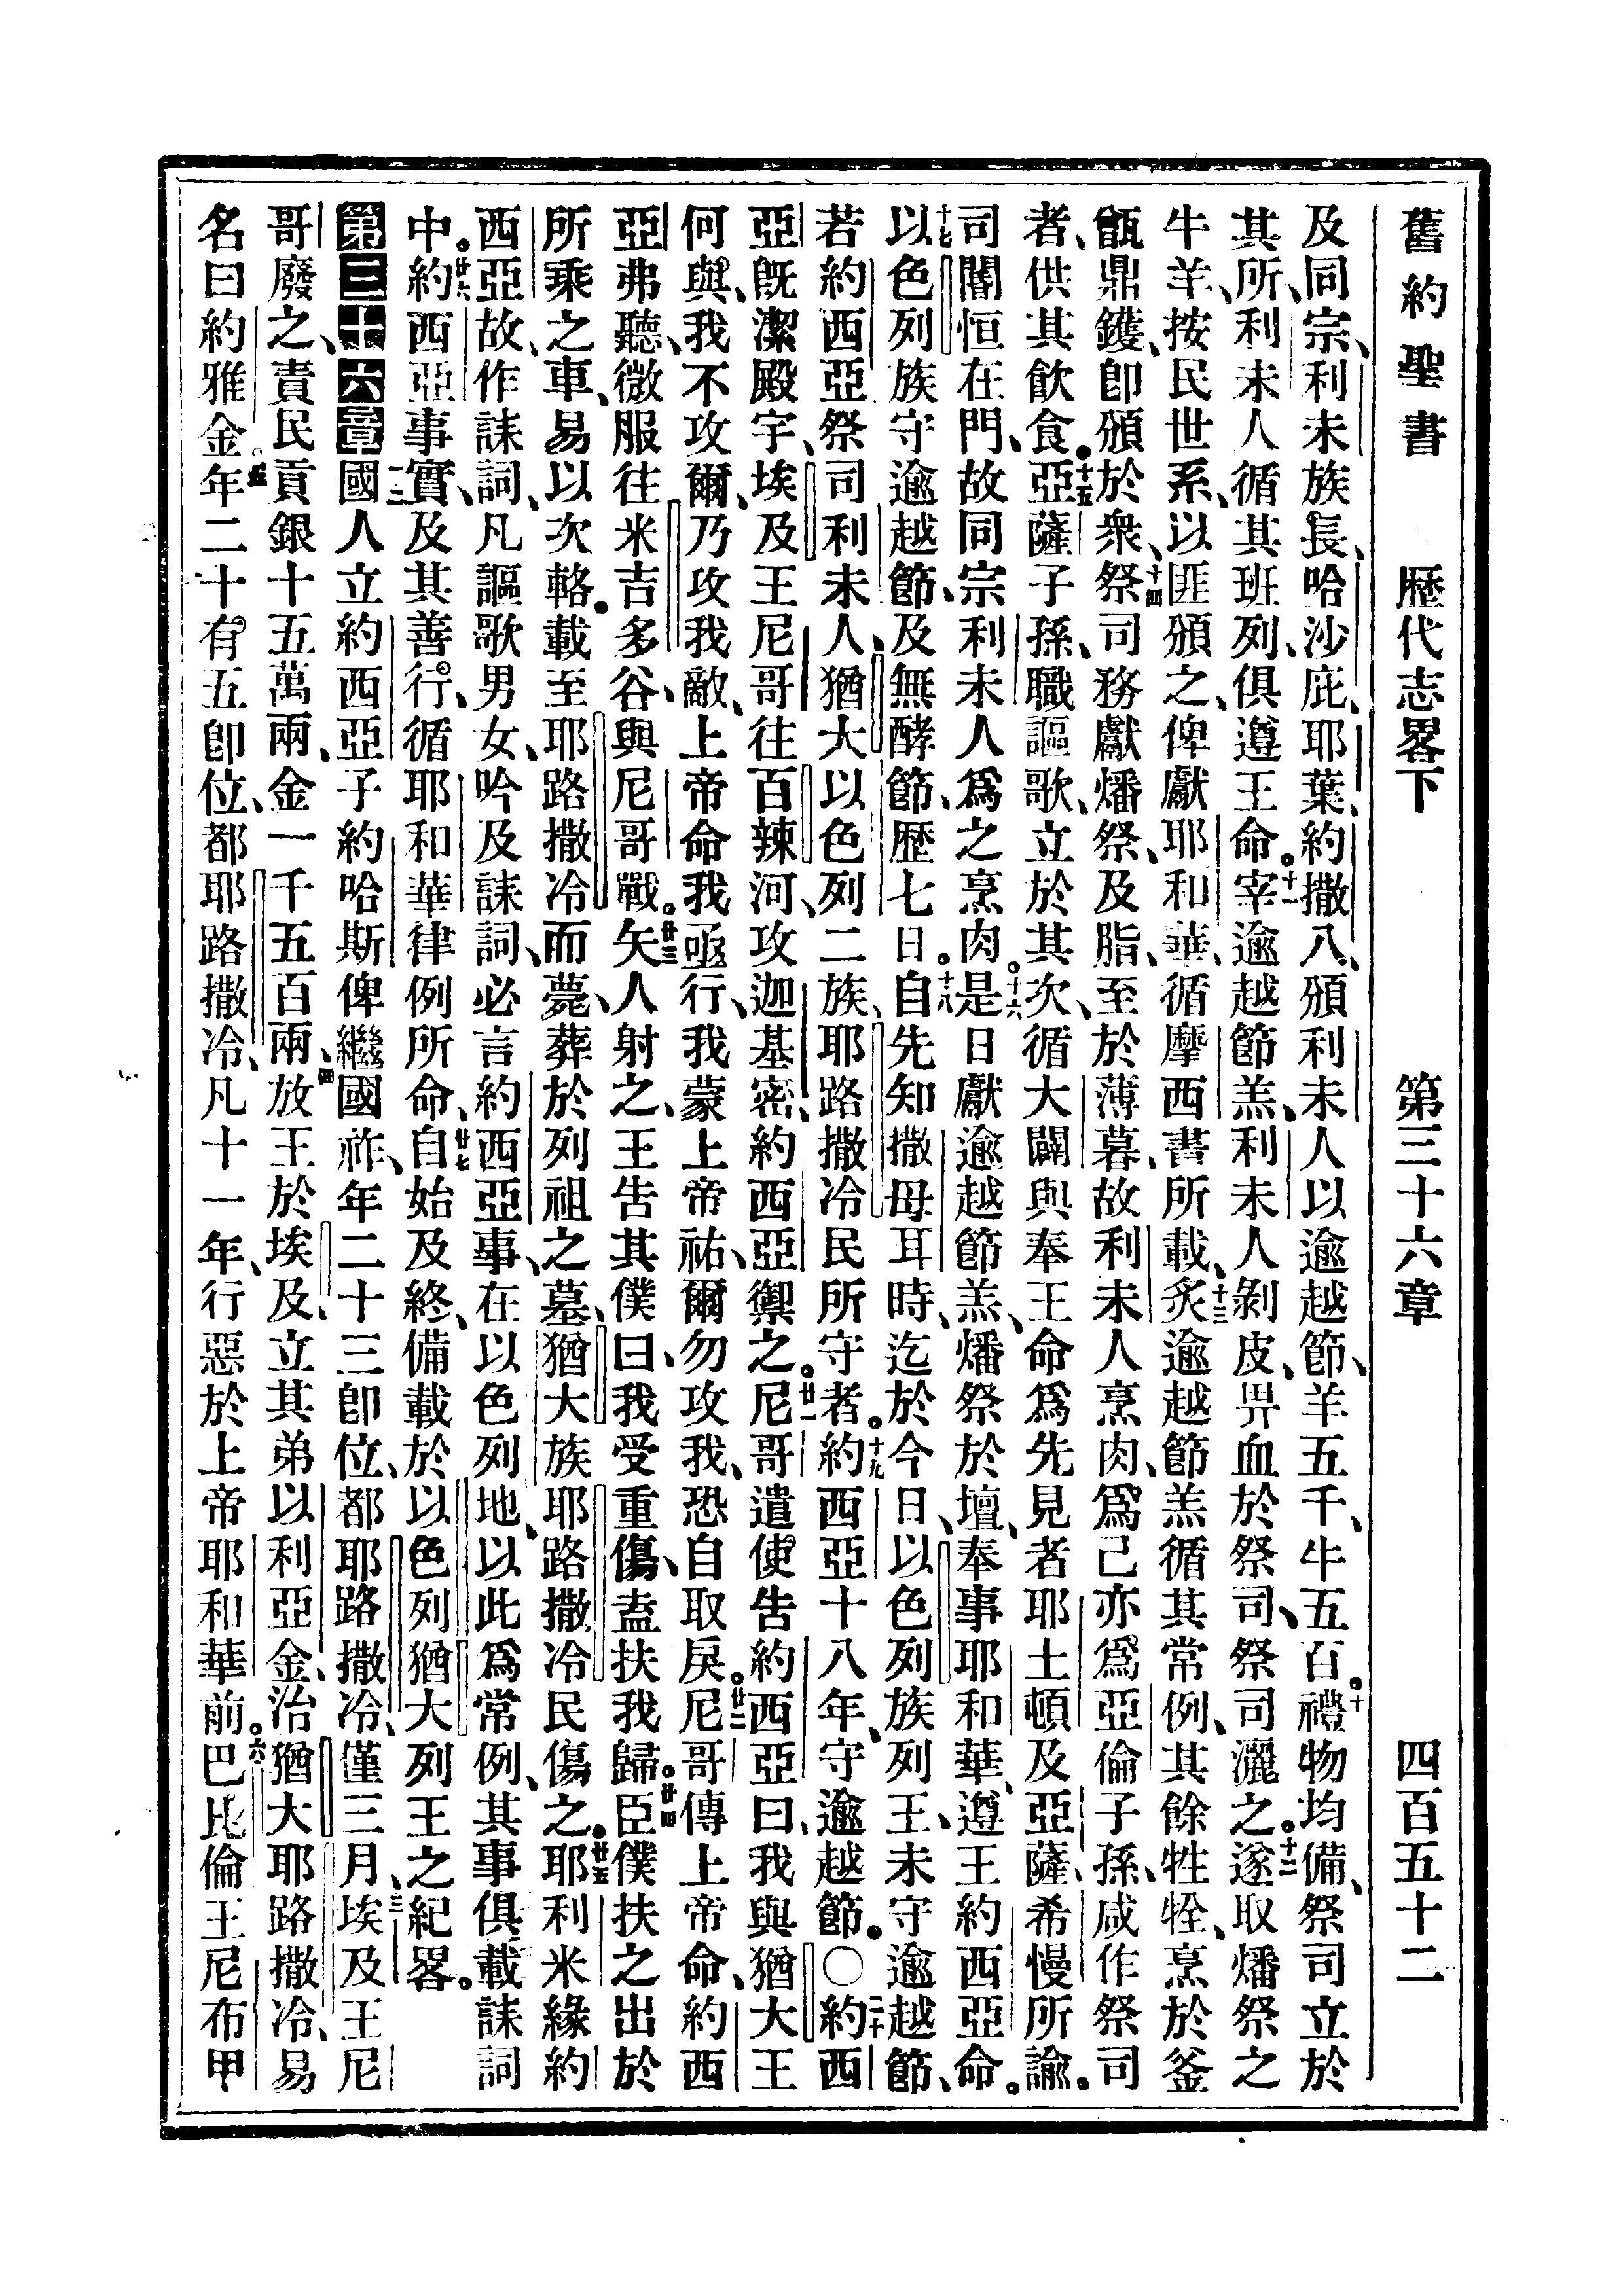 舊約聖書 歷代志畧下 第三十六章 四百五十二
及同宗、利未族長、哈沙庇、耶葉、約撒八、頒利未人以逾越節、羊五千、牛五百。十禮物均備、祭司立於
其所、利未人循其班列、俱遵王命。十一宰逾越節羔、利未人剝皮、畀血於祭司、祭司灑之。十二遂取燔祭之
牛羊、按民世系、以匪頒之、俾獻耶和華、循摩西書所載、十三炙逾越節羔循其常例、其餘牲牷、烹於釜
甑鼎鑊、卽頒於衆、十四祭司務獻燔祭、及脂、至於薄暮、故利未人烹肉、爲己亦爲亞倫子孫、咸作祭司
者、供其飮食。十五亞薩子孫、職謳歌、立於其次、循大闢與奉王命爲先見者耶土頓及亞薩、希慢所諭。
司閽恒在門、故同宗利未人爲之烹肉。十六是日獻逾越節羔、燔祭於壇、奉事耶和華、遵王約西亞命。
十七以色列族守逾越節、及無酵節、歷七日。十八自先知撒母耳時、迄於今日、以色列族列王、未守逾越節、
若約西亞祭司利未人、猶大以色列二族、耶路撒冷民所守者。十九約西亞十八年、守逾越節。〇二十約西
亞旣潔殿宇、埃及王尼哥往百辣河、攻迦基密、約西亞禦之。廿一尼哥遣使告約西亞曰、我與猶大王
何與、我不攻爾、乃攻我敵、上帝命我亟行、我蒙上帝祐、爾勿攻我、恐自取戾。廿二尼哥傳上帝命、約西
亞弗聽、微服往米吉多谷、與尼哥戰。廿三矢人射之、王告其僕曰、我受重傷、盍扶我歸。廿四臣僕扶之出於
所乘之車、易以次輅。載至耶路撒冷而薨、葬於列祖之墓、猶大族耶路撒冷民傷之。廿五耶利米緣約
西亞故、作誄詞、凡謳歌男女、吟及誄詞、必言約西亞事、在以色列地、以此爲常例、其事俱載誄詞
中。廿六約西亞事實、及其善行、循耶和華律例所命、廿七自始及終、備載於以色列猶大列王之紀畧。
第三十六章 一國人立約西亞子約哈斯俾繼國祚、二年二十三卽位、都耶路撒冷、僅三月、三埃及王尼
哥廢之、責民貢銀十五萬兩、金一千五百兩、四放王於埃及、立其弟以利亞金、治猶大耶路撒冷、易
名曰約雅金。五年二十有五卽位、都耶路撒冷、凡十一年、行惡於上帝耶和華前。六巴比倫王尼布甲